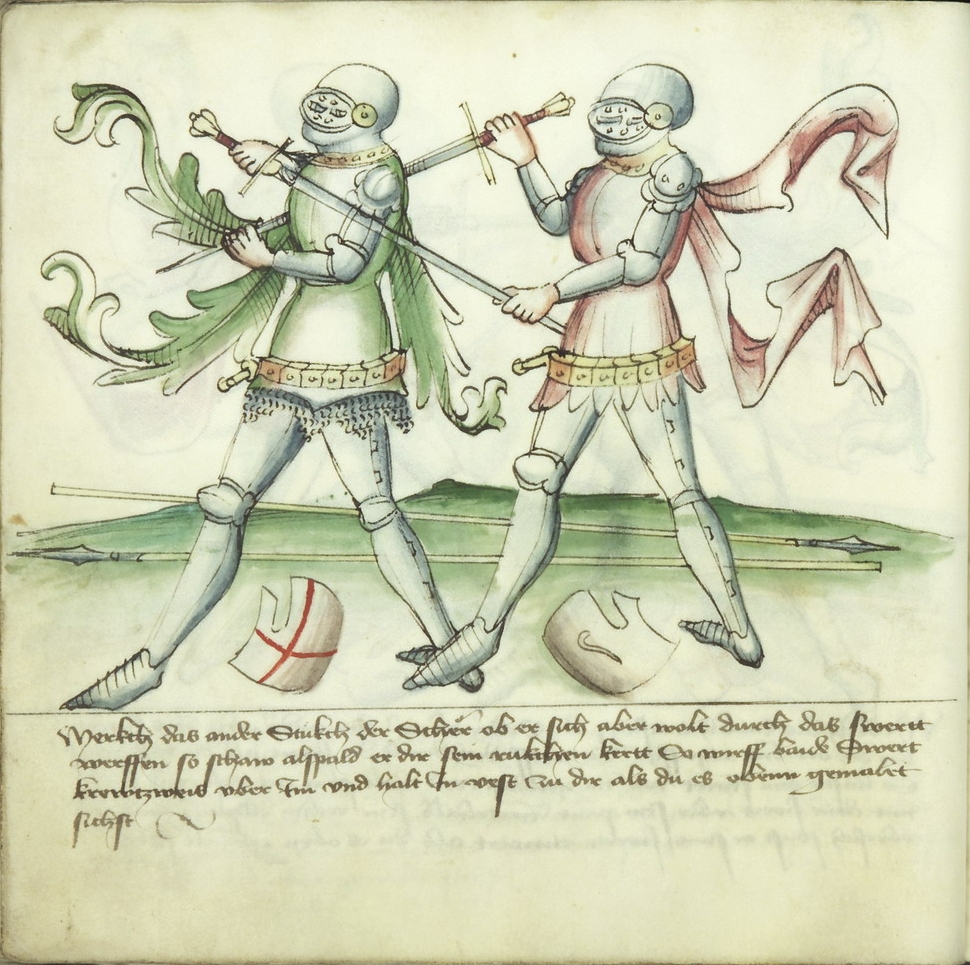 Merkch das ander Stukch der Scher ob er sich aber wolt durch das swertt
werffen so schaw alspald er dir sein rukchen kertt So wurff baide Swert
krewtzweis vber Im vnd halt In vest zu dir als du es obenn gemalet
sichst